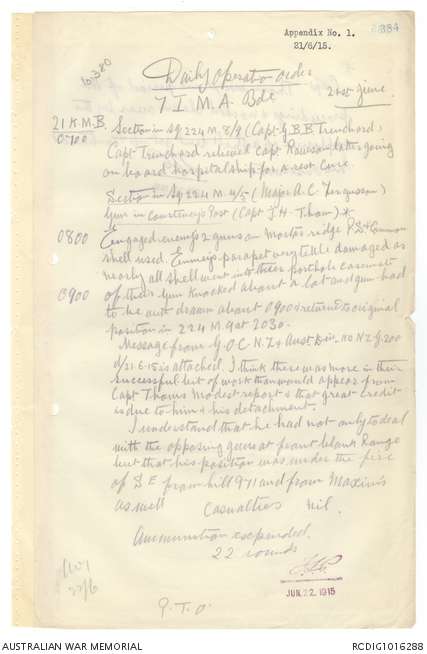 Appendix No. 1.
21/6/15.
Daily Operation Order
7 I. M. A. Bde
21st June
21 K.M.B.
0700
Section in Sq 224 M. 8/9 (Capt G.B.B Trenchard)
Capt Trenchard relieved Capt. Rawson latter going
on board hospital ship for a rest cure.
Section in Sq 224 M 4/5 (Major A. C. Fergusson)
Gun in Courtneys Post (Capt J. H. Thom) *
0800
Engaged enemys 2 guns on Mortar ridge Common
shell used. Enemys parapet very damaged as
nearly all shell went into there porthole casemate
0900
of theirs Gun knocked about a lot and gun had
to be with drawn about 0900 & returned to original
position in 224 M 9 at 2030.
Message from G O C N. Z & Aust. Div. no N Z G 200
d/21.6.15 is attached. I think there was more in their
successful bit of work than would appear from
Capt Thoms modest report & that great credit
is due to him & his detachment.
I understand that he had not only to deal
with the opposing guns at point blank Range
but that his position was under the fire
of S E from hill 971 and from Maxims
as well
Casualties Nil.
Ammunition expended.
22 rounds
JUN 22 1915
P. T. O.
AUSTRALIAN WAR MEMORIAL
RCDIG1016288